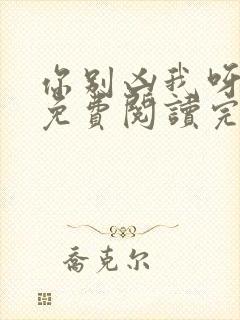 你别凶我呀
免費閱讀完
喬克尔